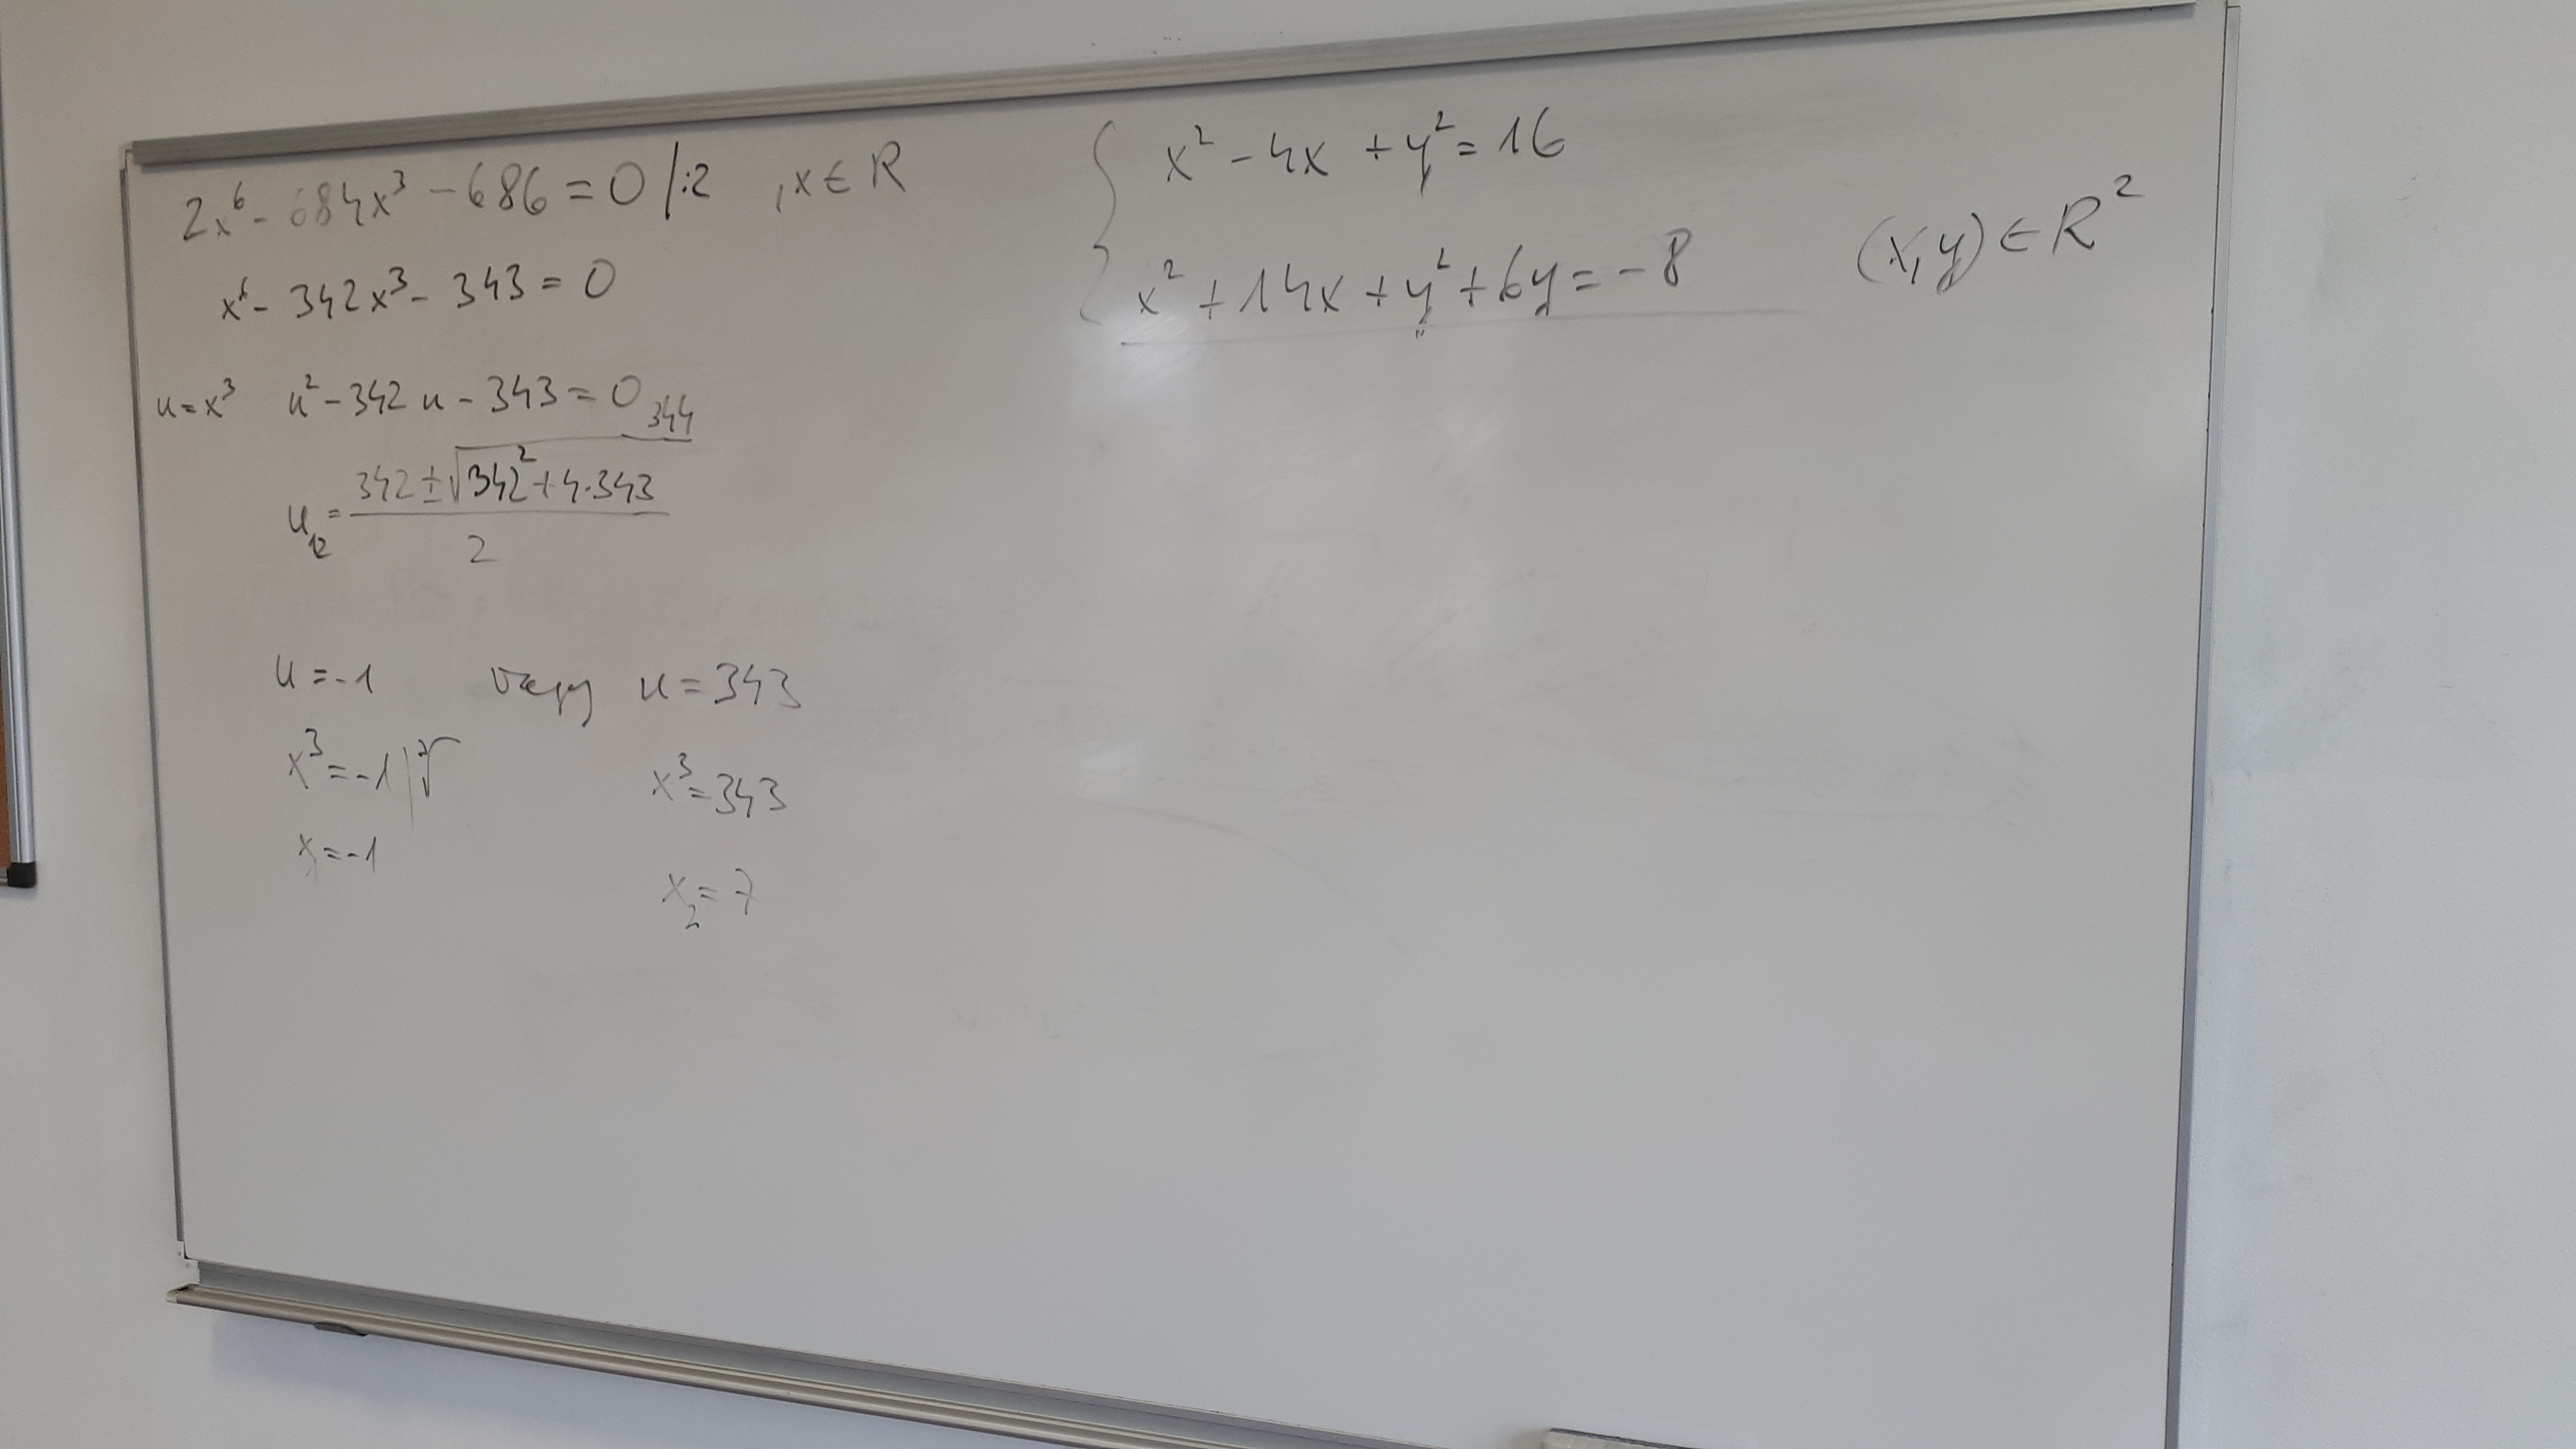 2x⁶ - 684x³ - 686 = 0 /:2 , x ∈ R
x⁶ - 342x³ - 343 = 0
u = x³ u² - 342u - 343 = 0
344
u₁₂ = (342 ± √(342² + 4·343)) / 2
u = -1 vagy u = 343
x³ = -1 | ³√ x³ = 343
x₁ = -1 x₂ = 7
{ x² - 4x + y² = 16
x² + 14x + y² + 6y = -8 (x,y) ∈ R²